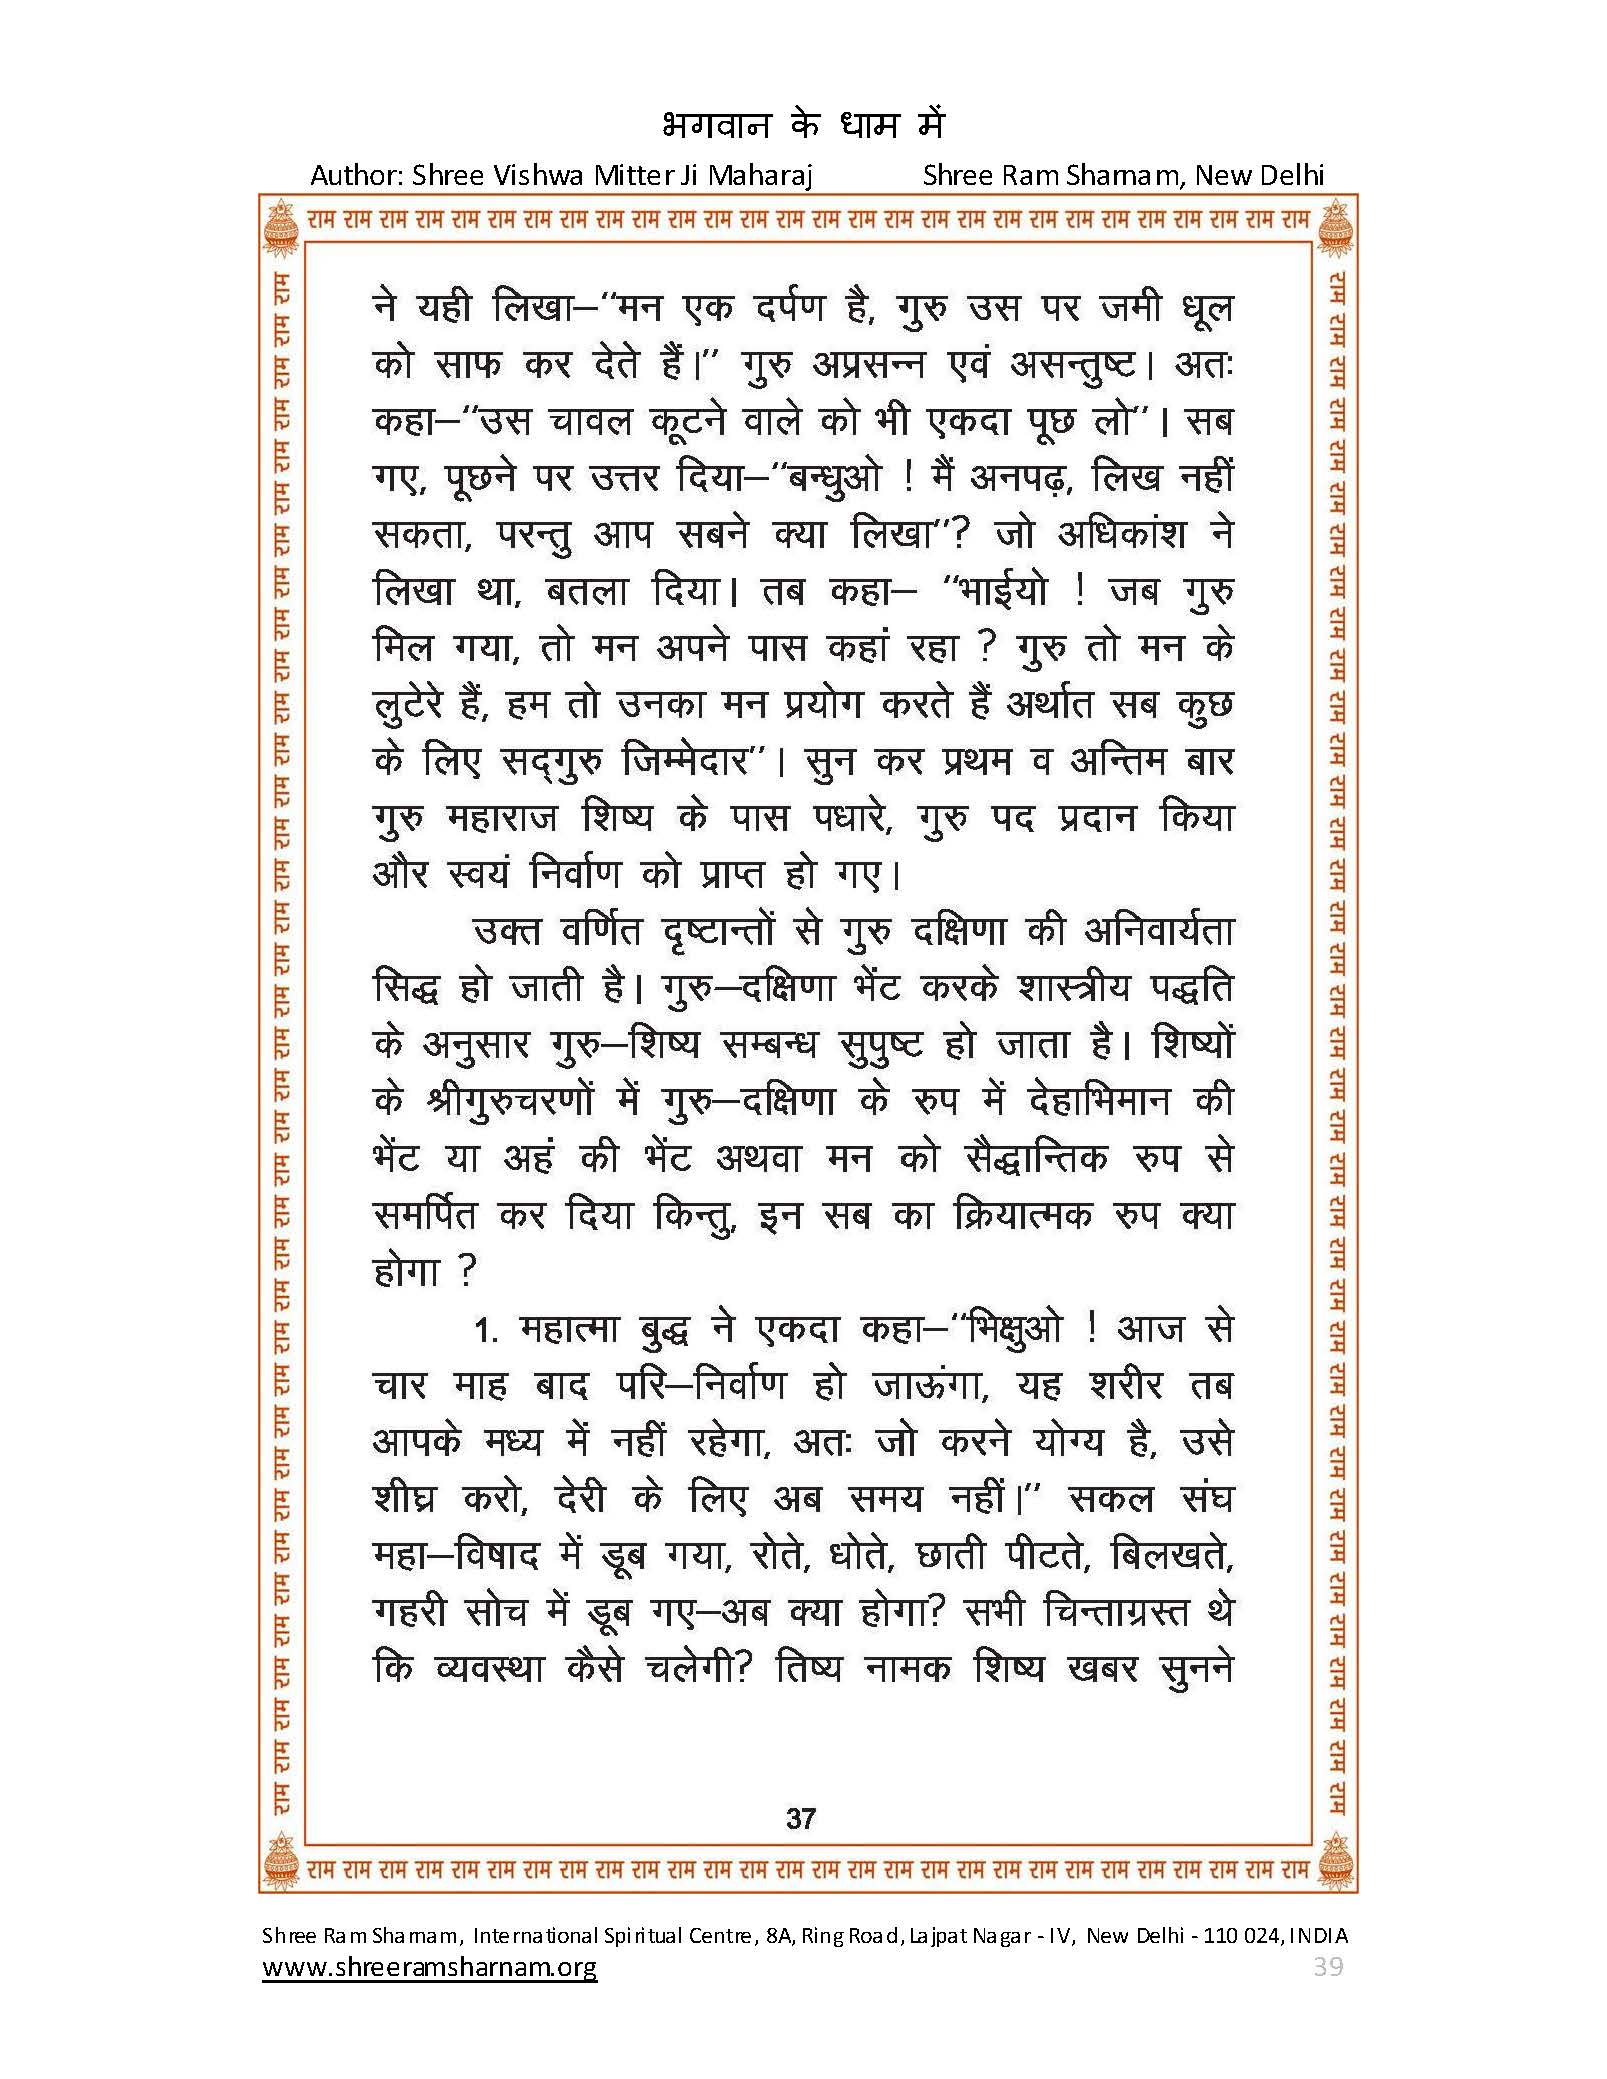 भगवान के धाम में
Author: Shree Vishwa Mitter Ji Maharaj Shree Ram Sharnam, New Delhi
राम राम राम राम राम राम राम राम राम राम राम राम राम राम राम राम राम राम राम राम राम राम राम राम राम राम राम राम
ने यही लिखा–“मन एक दर्पण है, गुरु उस पर जमी धूल
को साफ कर देते हैं।” गुरु अप्रसन्न एवं असन्तुष्ट। अतः
कहा–“उस चावल कूटने वाले को भी एकदा पूछ लो”। सब
गए, पूछने पर उत्तर दिया–“बन्धुओ ! मैं अनपढ़, लिख नहीं
सकता, परन्तु आप सबने क्या लिखा”? जो अधिकांश ने
लिखा था, बतला दिया। तब कहा– “भाईयो ! जब गुरु
मिल गया, तो मन अपने पास कहां रहा ? गुरु तो मन के
लुटेरे हैं, हम तो उनका मन प्रयोग करते हैं अर्थात सब कुछ
के लिए सद्‌गुरु जिम्मेदार”। सुन कर प्रथम व अन्तिम बार
गुरु महाराज शिष्य के पास पधारे, गुरु पद प्रदान किया
और स्वयं निर्वाण को प्राप्त हो गए।
उक्त वर्णित दृष्टान्तों से गुरु दक्षिणा की अनिवार्यता
सिद्ध हो जाती है। गुरु–दक्षिणा भेंट करके शास्त्रीय पद्धति
के अनुसार गुरु–शिष्य सम्बन्ध सुपुष्ट हो जाता है। शिष्यों
के श्रीगुरुचरणों में गुरु–दक्षिणा के रुप में देहाभिमान की
भेंट या अहं की भेंट अथवा मन को सैद्धान्तिक रुप से
समर्पित कर दिया किन्तु, इन सब का क्रियात्मक रुप क्या
होगा ?
1. महात्मा बुद्ध ने एकदा कहा–“भिक्षुओ ! आज से
चार माह बाद परि–निर्वाण हो जाऊंगा, यह शरीर तब
आपके मध्य में नहीं रहेगा, अतः जो करने योग्य है, उसे
शीघ्र करो, देरी के लिए अब समय नहीं।” सकल संघ
महा–विषाद में डूब गया, रोते, धोते, छाती पीटते, बिलखते,
गहरी सोच में डूब गए–अब क्या होगा? सभी चिन्ताग्रस्त थे
कि व्यवस्था कैसे चलेगी? तिष्य नामक शिष्य खबर सुनने
37
राम राम राम राम राम राम राम राम राम राम राम राम राम राम राम राम राम राम राम राम राम राम राम राम राम राम राम राम
Shree Ram Sharnam, International Spiritual Centre, 8A, Ring Road, Lajpat Nagar - IV, New Delhi - 110 024, INDIA
www.shreeramsharnam.org 39